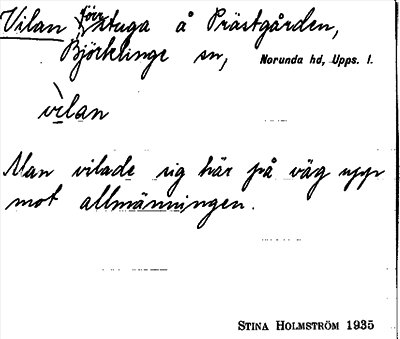 Vilan, förr stuga å Prästgården,
Björklinge sn, Norunda hd, Upps. l.
vìlan
Man vilade sig här på väg upp
mot allmänningen.
STINA HOLMSTRÖM 1935